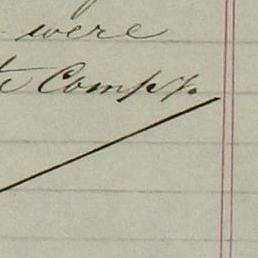 were
Compy.